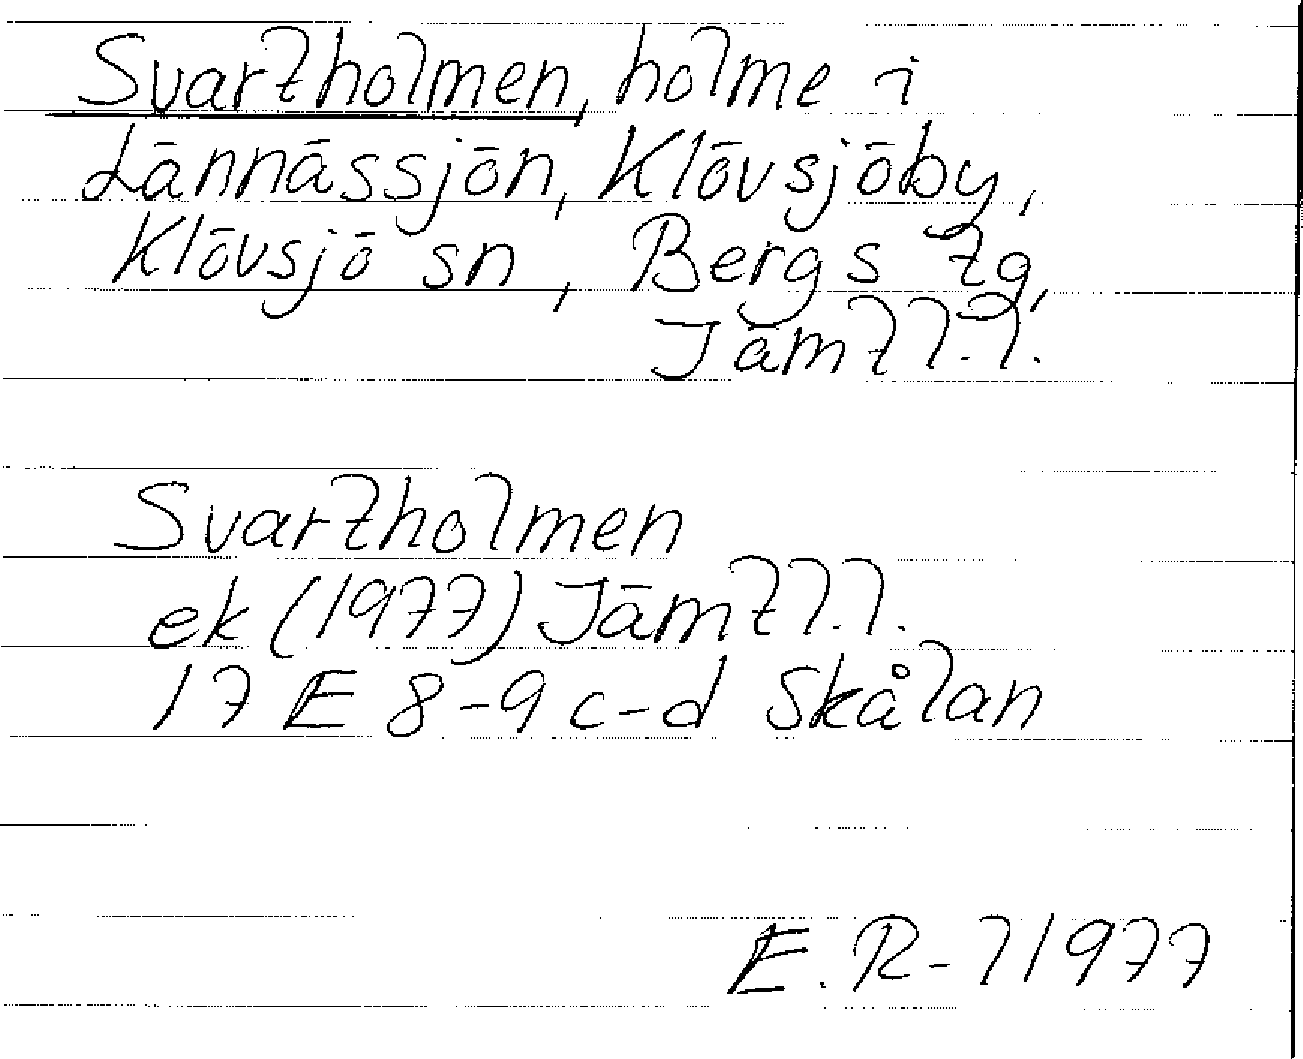 Svartholmen, holme i
Lännässjön, Klövsjöby,
Klövsjö sn, Bergs tg,
Jämtl.l.
Svartholmen
ek (1977) Jämtl.l.
17 E 8-9 c-d Skålan
E. R-l 1977